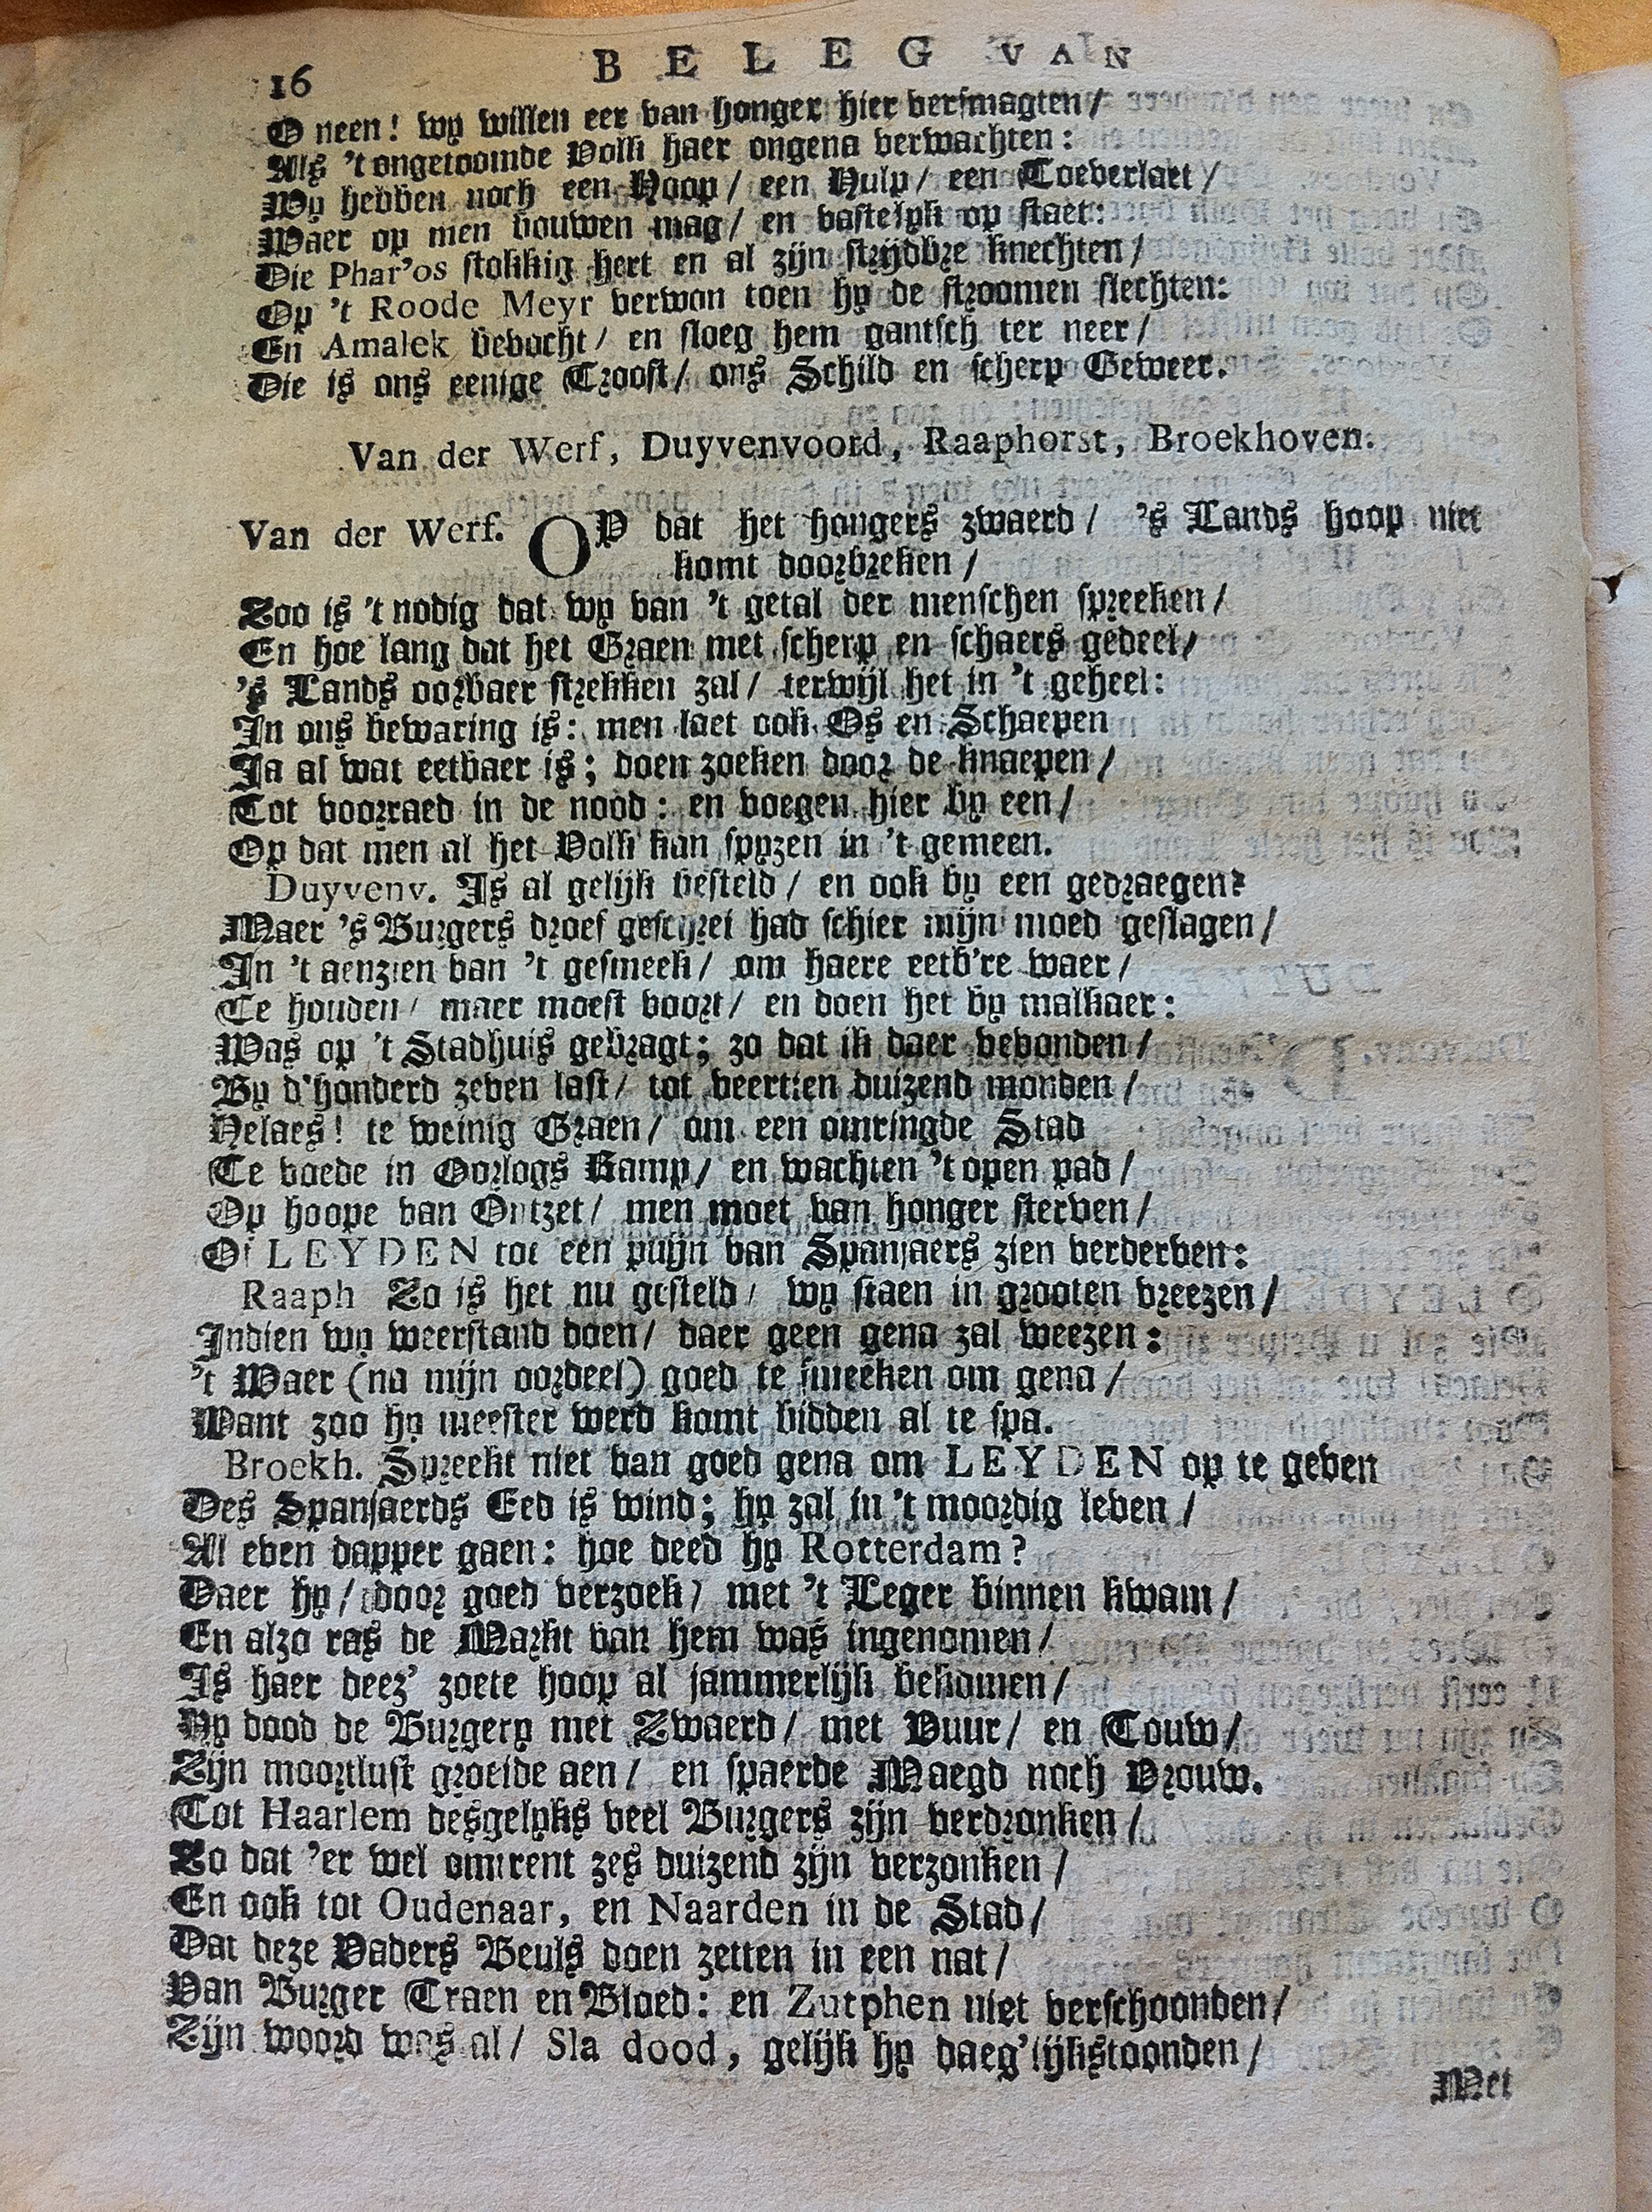 16 BELEG VAN
O neen! wy willen eer van honger hier versmagten/
Als 't ongetoomde Volk haer ongena verwachten:
Wy hebben noch een Hoop/ een Hulp/ een Toeverlaet/
Waer op men bouwen mag/ en vastelyk op staet:
Die Phar'os stokkig hert en al zijn strijdbre knechten/
Op 't Roode Meyr verwon toen hy de stroomen slechten:
En Amalek bevocht/ en sloeg hem gantsch ter neer/
Die is ons eenige Troost/ ons Schild en scherp Geweer.
Van der Werf, Duyvenvoord, Raaphorst, Broekhoven.
Van der Werf. OP dat het hongers zwaerd/ 's Lands hoop niet
komt doorbreken/
Zoo is 't nodig dat wy van 't getal der menschen spreeken/
En hoe lang dat het Graen met scherp en schaers gedeel/
's Lands oorbaer strekken zal/ terwijl het in 't geheel:
In ons bewaring is: men laet ook Os en Schaepen
Ja al wat eetbaer is; doen zoeken door de knaepen/
Tot voorraed in de nood: en voegen hier by een/
Op dat men al het Volk kan spyzen in 't gemeen.
Duyvenv. Is al gelijk besteld/ en ook by een gedraegen?
Maer 's Burgers droef geschrei had schier mijn moed geslagen/
In 't aenzien van 't gesmeek/ om haere eetb're waer/
Te houden/ maer moest voort/ en doen het by malkaer:
Was op 't Stadhuis gebragt; zo dat ik daer bevonden/
By d'honderd zeven last/ tot veertien duizend monden/
Helaes! te weinig Graen/ om een omringde Stad
Te voede in Oorlogs Kamp/ en wachten 't open pad/
Op hoope van Ontzet/ men moet van honger sterven/
Of LEYDEN tot een puijn van Spanjaers zien verderven:
Raaph Zo is het nu gesteld/ wy staen in grooten vreezen/
Indien wy weerstand doen/ daer geen gena zal weezen:
't Waer (na mijn oordeel) goed te smeeken om gena/
Want zoo hy meester werd komt bidden al te spa.
Broekh. Spreekt niet van goed gena om LEYDEN op te geven
Des Spanjaerds Eed is wind; hy zal in 't moordig leven/
Al even dapper gaen: hoe deed hy Rotterdam?
Daer hy/ door goed verzoek/ met 't Leger binnen kwam/
En alzo ras de Markt van hem was ingenomen/
Is haer deez' zoete hoop al jammerlijk bekomen/
Hy dood de Burgery met Zwaerd/ met Vuur/ en Touw/
Zijn moortlust groeide aen/ en spaerde Maegd noch Vrouw.
Tot Haarlem desgelyks veel Burgers zijn verdronken/
Zo dat 'er wel omtrent zes duizend zijn verzonken/
En ook tot Oudenaar, en Naarden in de Stad/
Dat deze Vaders Beuls doen zetten in een nat/
Van Burger Traen en Bloed: en Zutphen niet verschoonden/
Zijn woord was al/ Sla dood, gelijk hy daeg'lijkstoonden/
Met